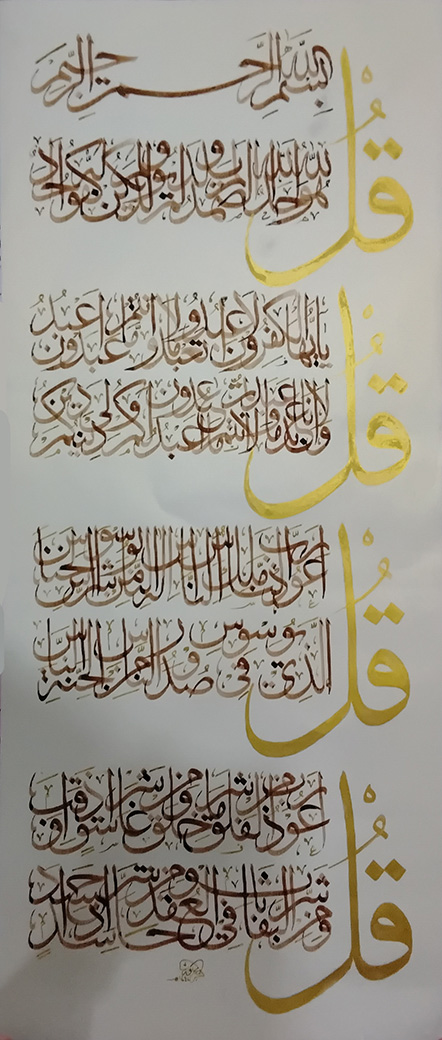 بسم الله الرحمن الرحيم
قل هو الله احد الله الصمد لم يلد ولم يولد ولم يكن له كفوا احد
قل يايها الكفرون لا اعبد ما تعبدون ولا انتم عبدون ما اعبد
ولا انا عابد ما عبدتم ولا انتم عبدون ما اعبد لكم دينكم ولي دين
قل اعوذ برب الناس ملك الناس اله الناس من شر الوسواس الخناس
الذي يوسوس في صدور الناس من الجنة والناس
قل اعوذ برب الفلق من شر ما خلق ومن شر غاسق اذا وقب
ومن شر النفاثات في العقد ومن شر حاسد اذا حسد